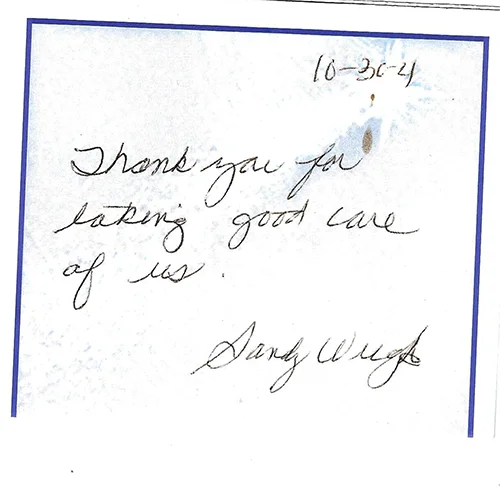 10-30-4
Thank you for
taking good care
of us.
Sandy